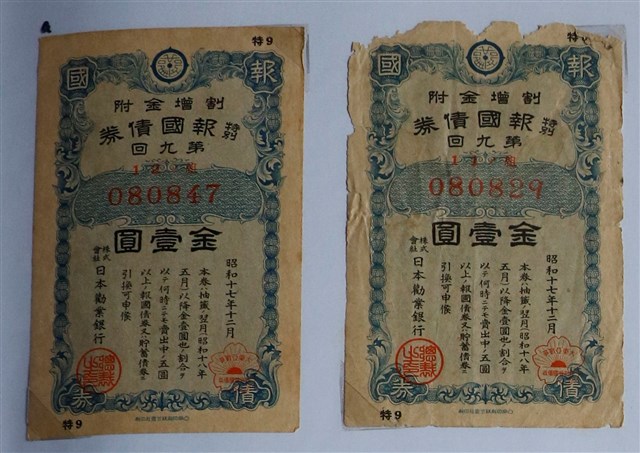 特9
國 報
附金增割
特別報國債券
回九第
12組
080847
圓壹金
昭和十七年十二月
本券ハ抽籤ノ翌月(昭和十八年
五月)以降金壹圓也ノ割合ヲ
以テ何時ニテモ賣出中ノ五圓
以上ノ報國債券又ハ貯蓄債券ニ
引換可申候
株式會社日本勸業銀行
券 債
特9
特
國 報
附金增割
特別報國債券
回九第
11組
080829
圓壹金
昭和十七年十二月
本券ハ抽籤ノ翌月(昭和十八年
五月)以降金壹圓也ノ割合ヲ
以テ何時ニテモ賣出中ノ五圓
以上ノ報國債券又ハ貯蓄債券ニ
引換可申候
株式會社日本勸業銀行
券 債
特9